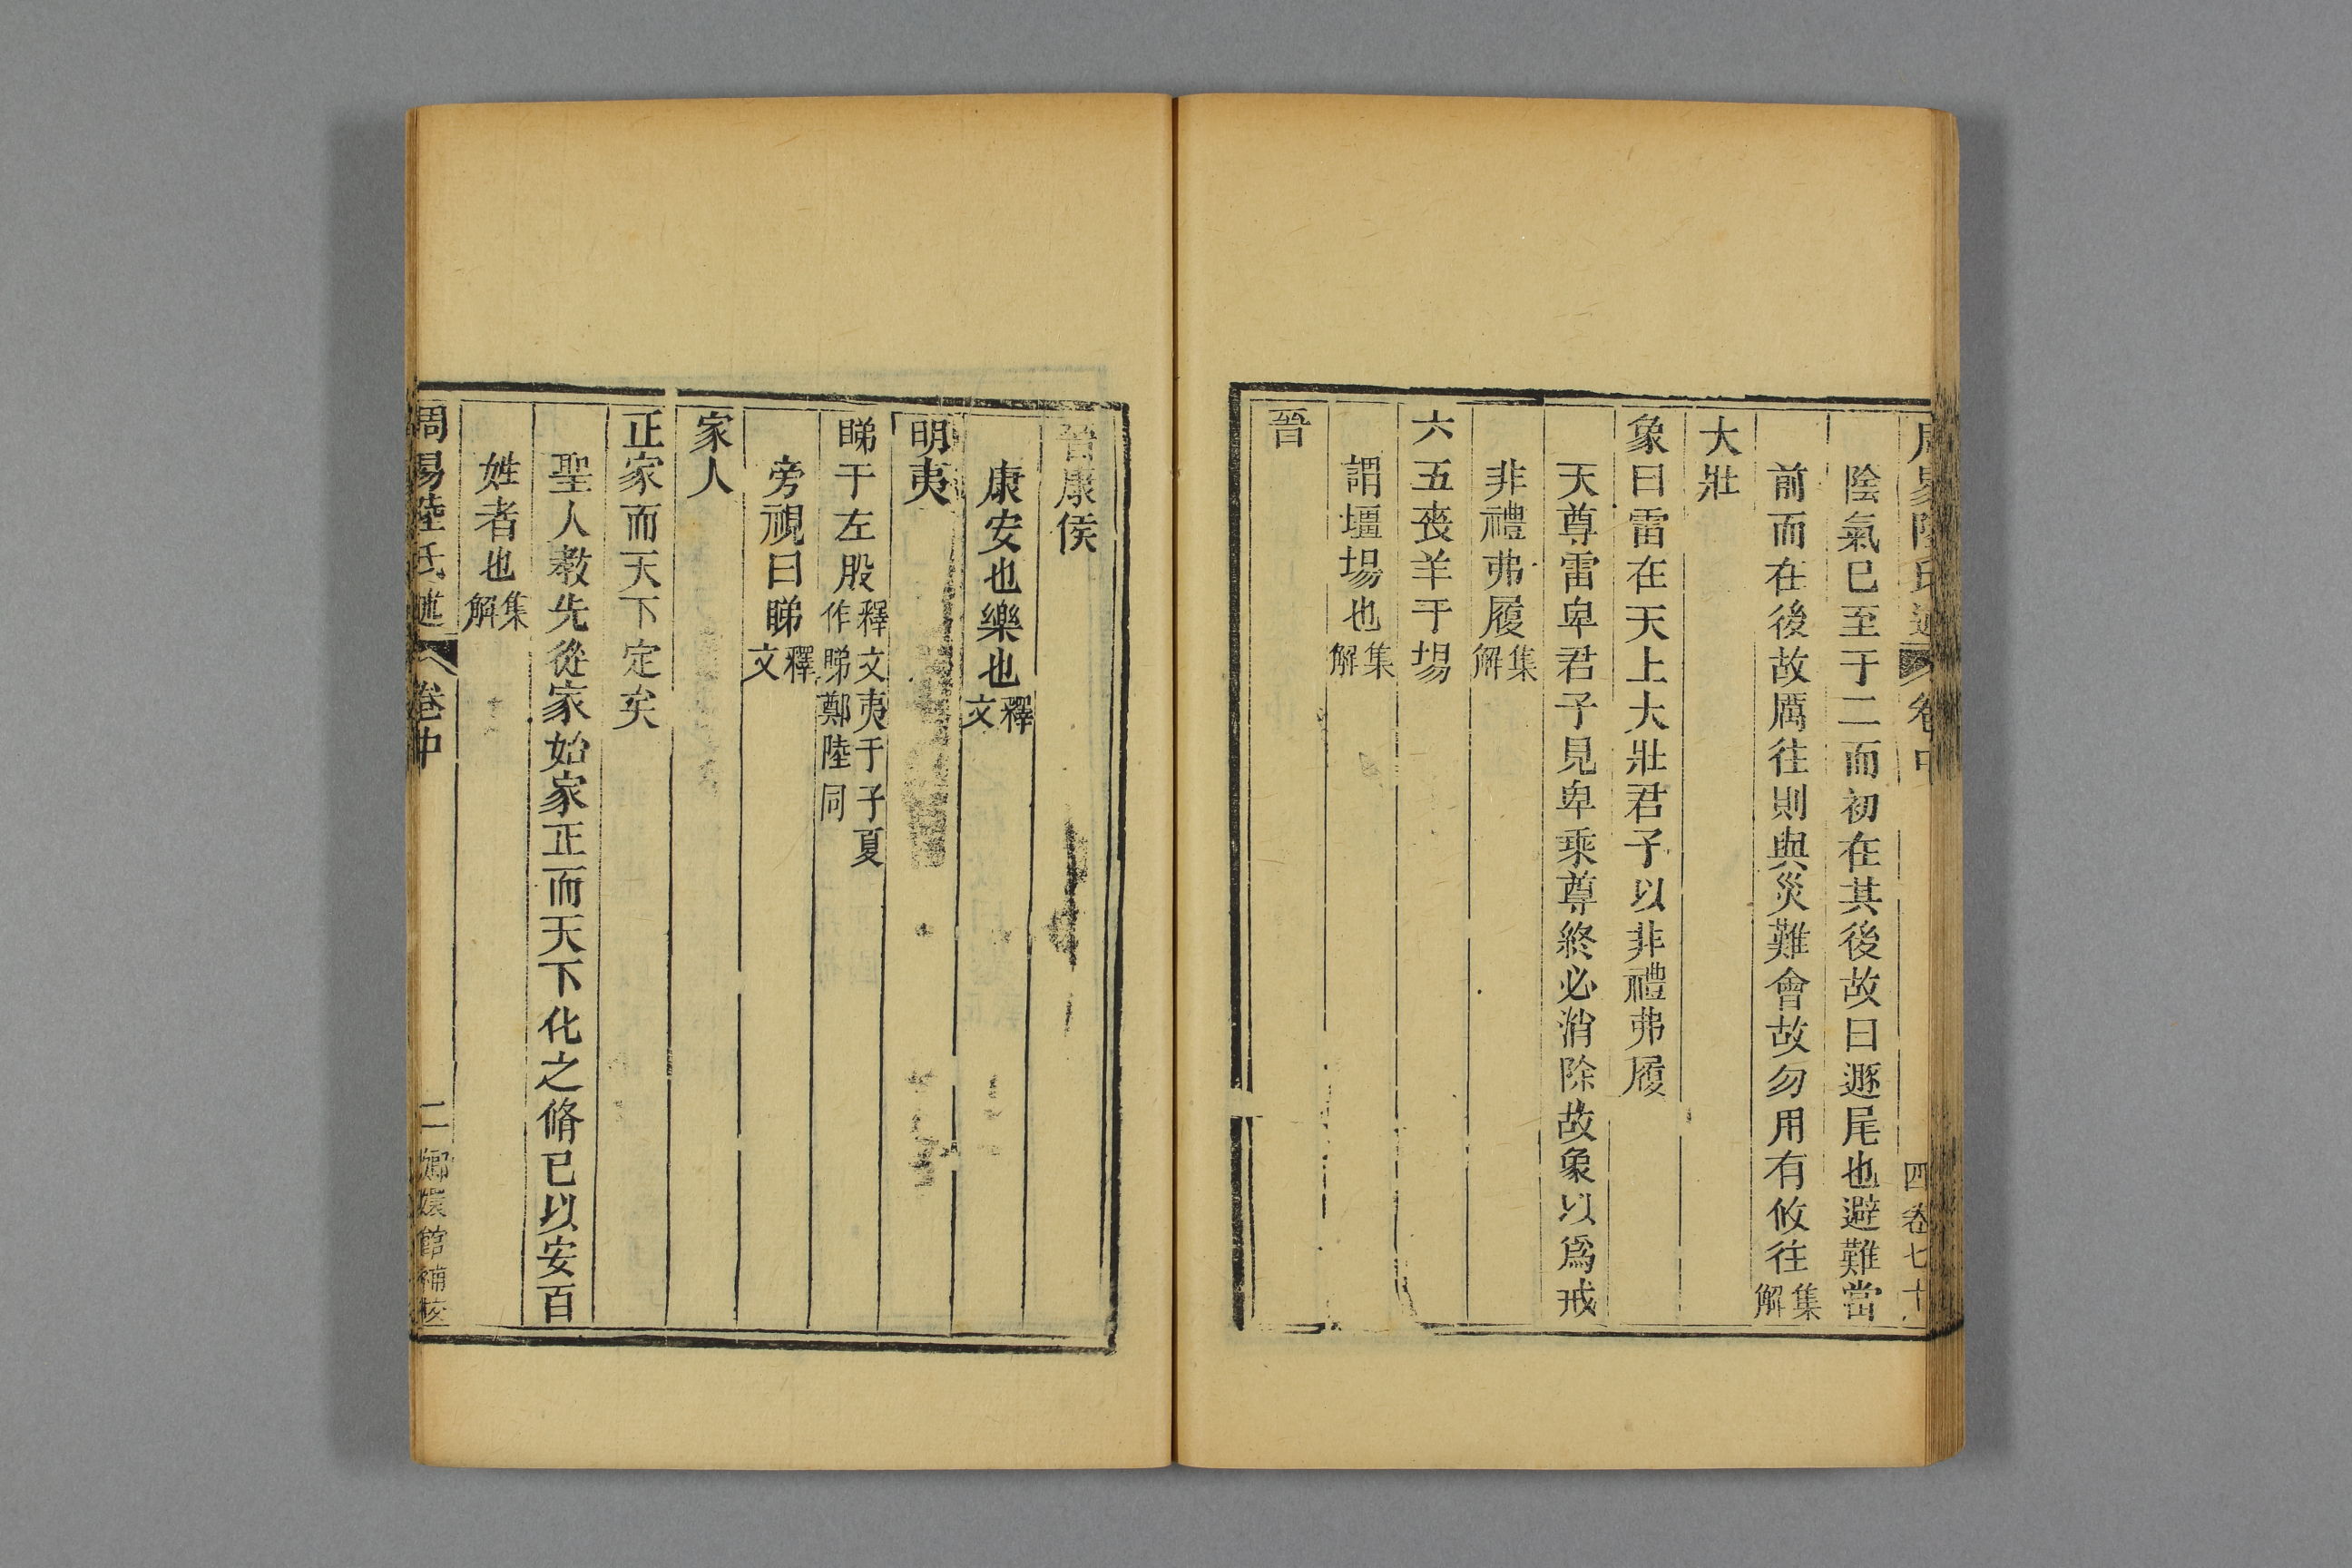 陰氣已至于二而初在其後故曰遯尾也避難當
前而在後故厲往則與災難會故勿用有攸往集解
大壯
象曰雷在天上大壯君子以非禮弗履
天尊雷卑君子見卑乘尊終必消除故象以爲戒
非禮弗履集解
六五喪羊于埸
謂壃埸也集解
晉
晉康侯
康安也樂也釋文
明夷
睇于左股釋文夷于子夏作睇鄭陸同
旁視曰睇釋文
家人
正家而天下定矣
聖人教先從家始家正而天下化之脩已以安百
姓者也集解
周易陸氏述 卷中 二 嫏嬛館補校